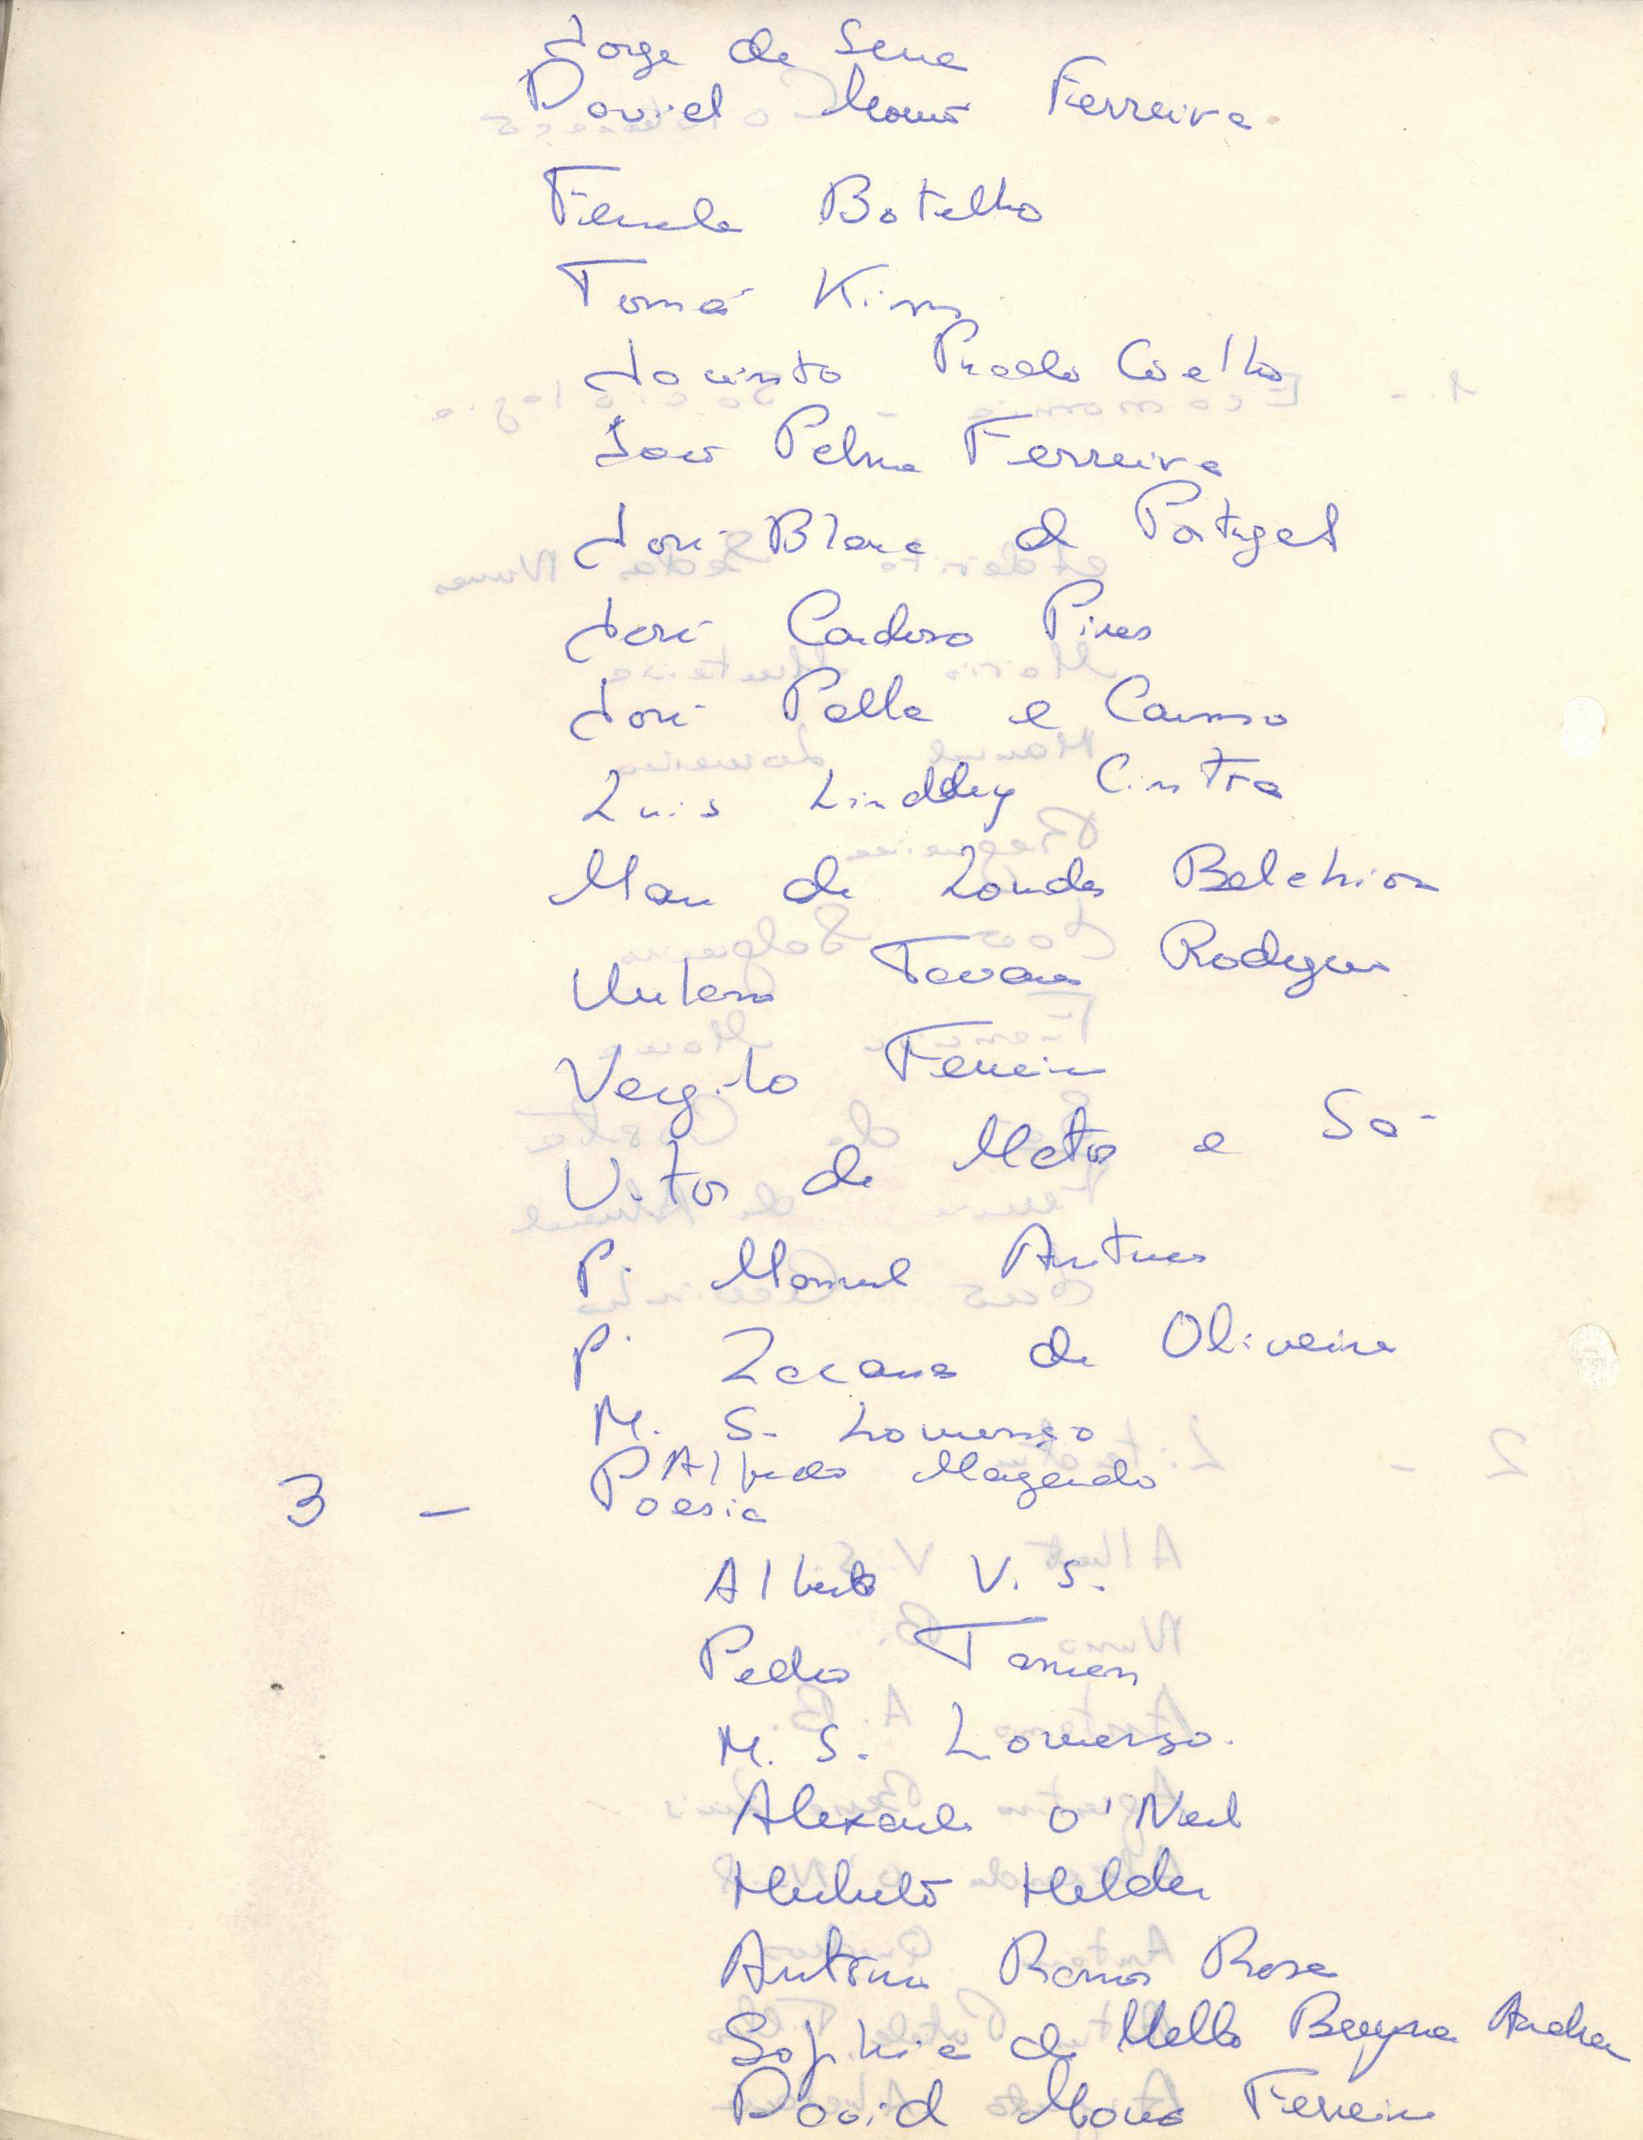 Jorge de Sena
David Mourão Ferreira
Fernanda Botelho
Tomás Kim
Jacinto Prado Coelho
João Palma Ferreira
José Blanc de Portugal
José Cardoso Pires
José Palla e Carmo
Luis Lindley Cintra
Maria de Lourdes Belchior
Urbano Tavares Rodrigues
Vergilio Ferreira
Vitor de Matos e Sá
P. Manuel Antunes
P. de Oliveira
M. S. Lourenço
Alfredo Margarido
3 - Poesia
Alberto V. S.
Pedro Tamen
M. S. Lourenço.
Alexandre O'Neil
Herberto Helder
António Ramos Rosa
Sophia de Mello Breyner Andresen
David Mourão Ferreira